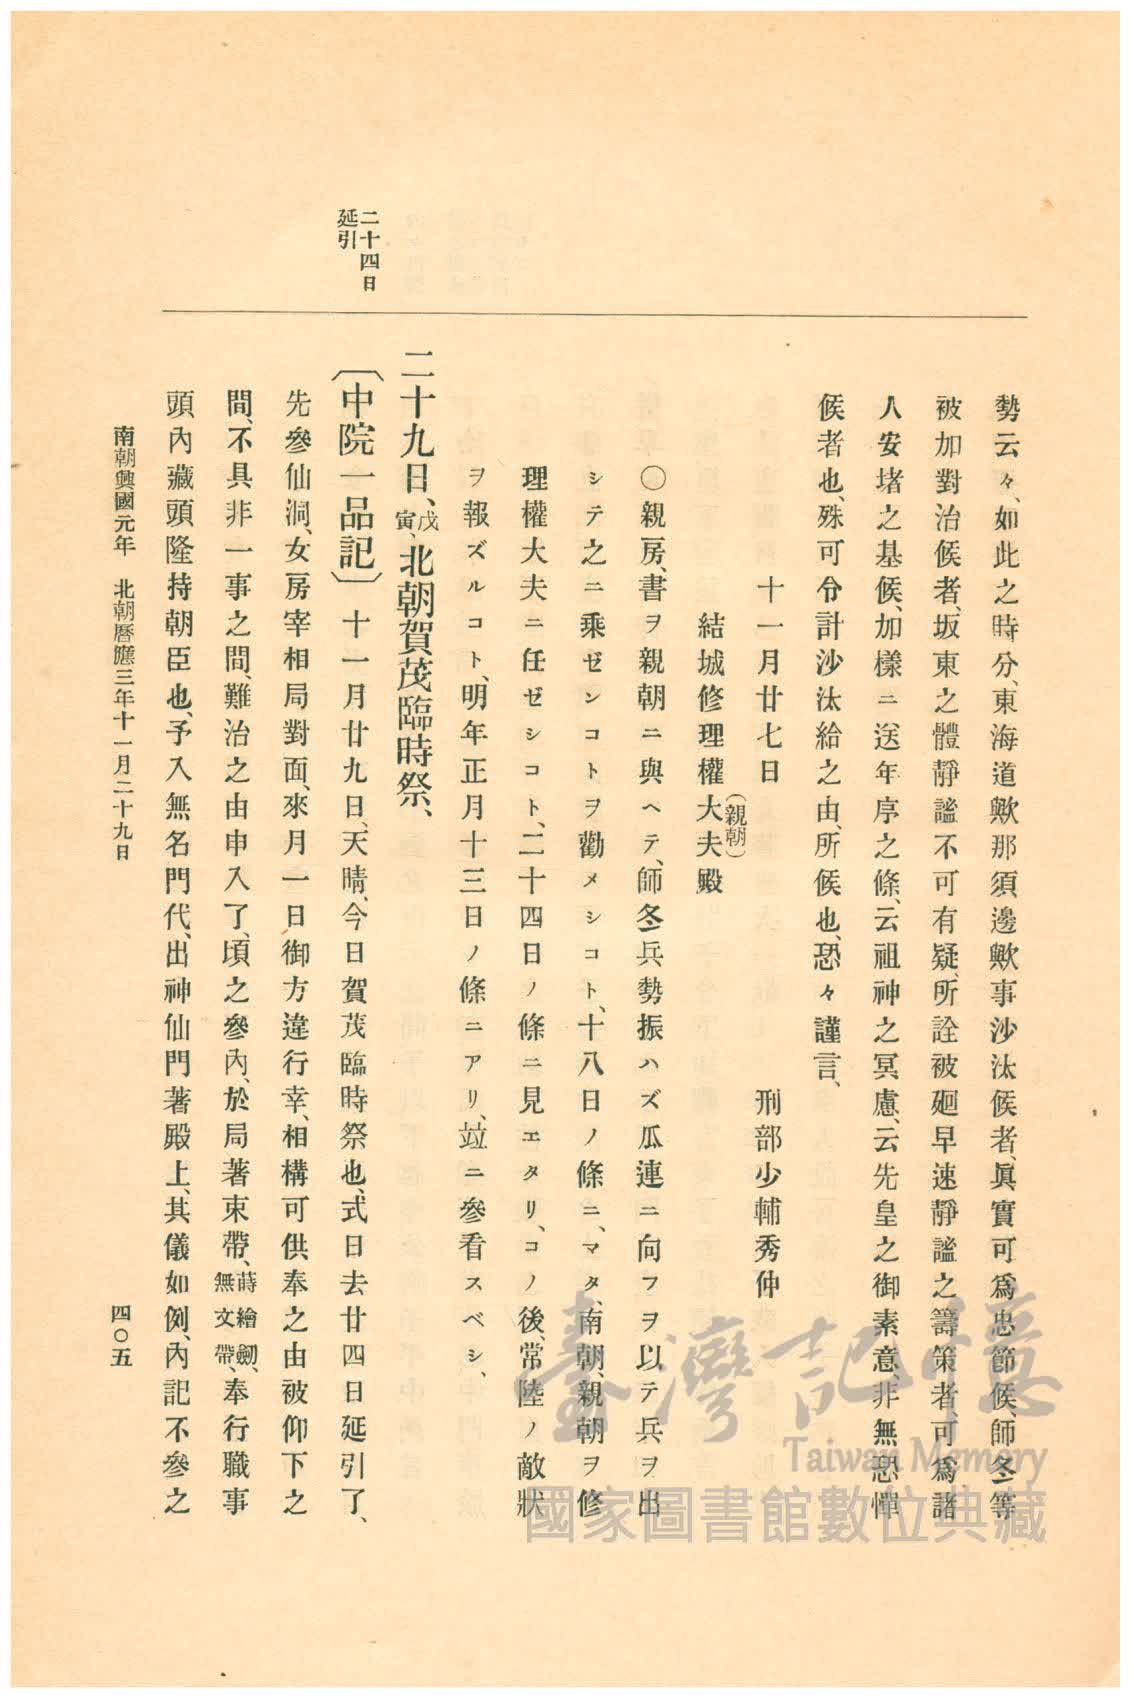 勢云々、如此之時分、東海道歟那須邊歟事沙汰候者、眞實可爲忠節候、師冬等
被加對治候者、坂東之體靜謐不可有疑、所詮被廻早速靜謐之籌策者、可爲諸
人安堵之基候、加樣ニ送年序之條、云祖神之冥慮、云先皇之御素意、非無恐憚
候者也、殊可令計沙汰給之由、所候也、恐々謹言、
十一月廿七日　刑部少輔秀仲
結城修理權大夫殿
（親朝）
○親房、書ヲ親朝ニ與ヘテ、師冬兵勢振ハズ瓜連ニ向フヲ以テ兵ヲ出
シテ之ニ乘ゼンコトヲ勸メシコト、十八日ノ條ニ、マタ、南朝、親朝ヲ修
理權大夫ニ任ゼシコト、二十四日ノ條ニ見エタリ、コノ後、常陸ノ敵狀
ヲ報ズルコト、明年正月十三日ノ條ニアリ、竝ニ參看スベシ、
二十四日
延引
二十九日、戊寅、北朝賀茂臨時祭、
〔中院一品記〕十一月廿九日、天晴、今日賀茂臨時祭也、式日去廿四日延引了、
先參仙洞、女房宰相局對面、來月一日御方違行幸、相構可供奉之由被仰下之
間、不具非一事之間、難治之由申入了、頃之參內、於局著束帶、蒔繪劒、無文帶、奉行職事
頭、內藏頭隆持朝臣也、予入無名門代、出神仙門著殿上、其儀如例、內記不參之
南朝興國元年　北朝曆應三年十一月二十九日
四〇五
臺灣記憶
Taiwan Memory
國家圖書館數位典藏